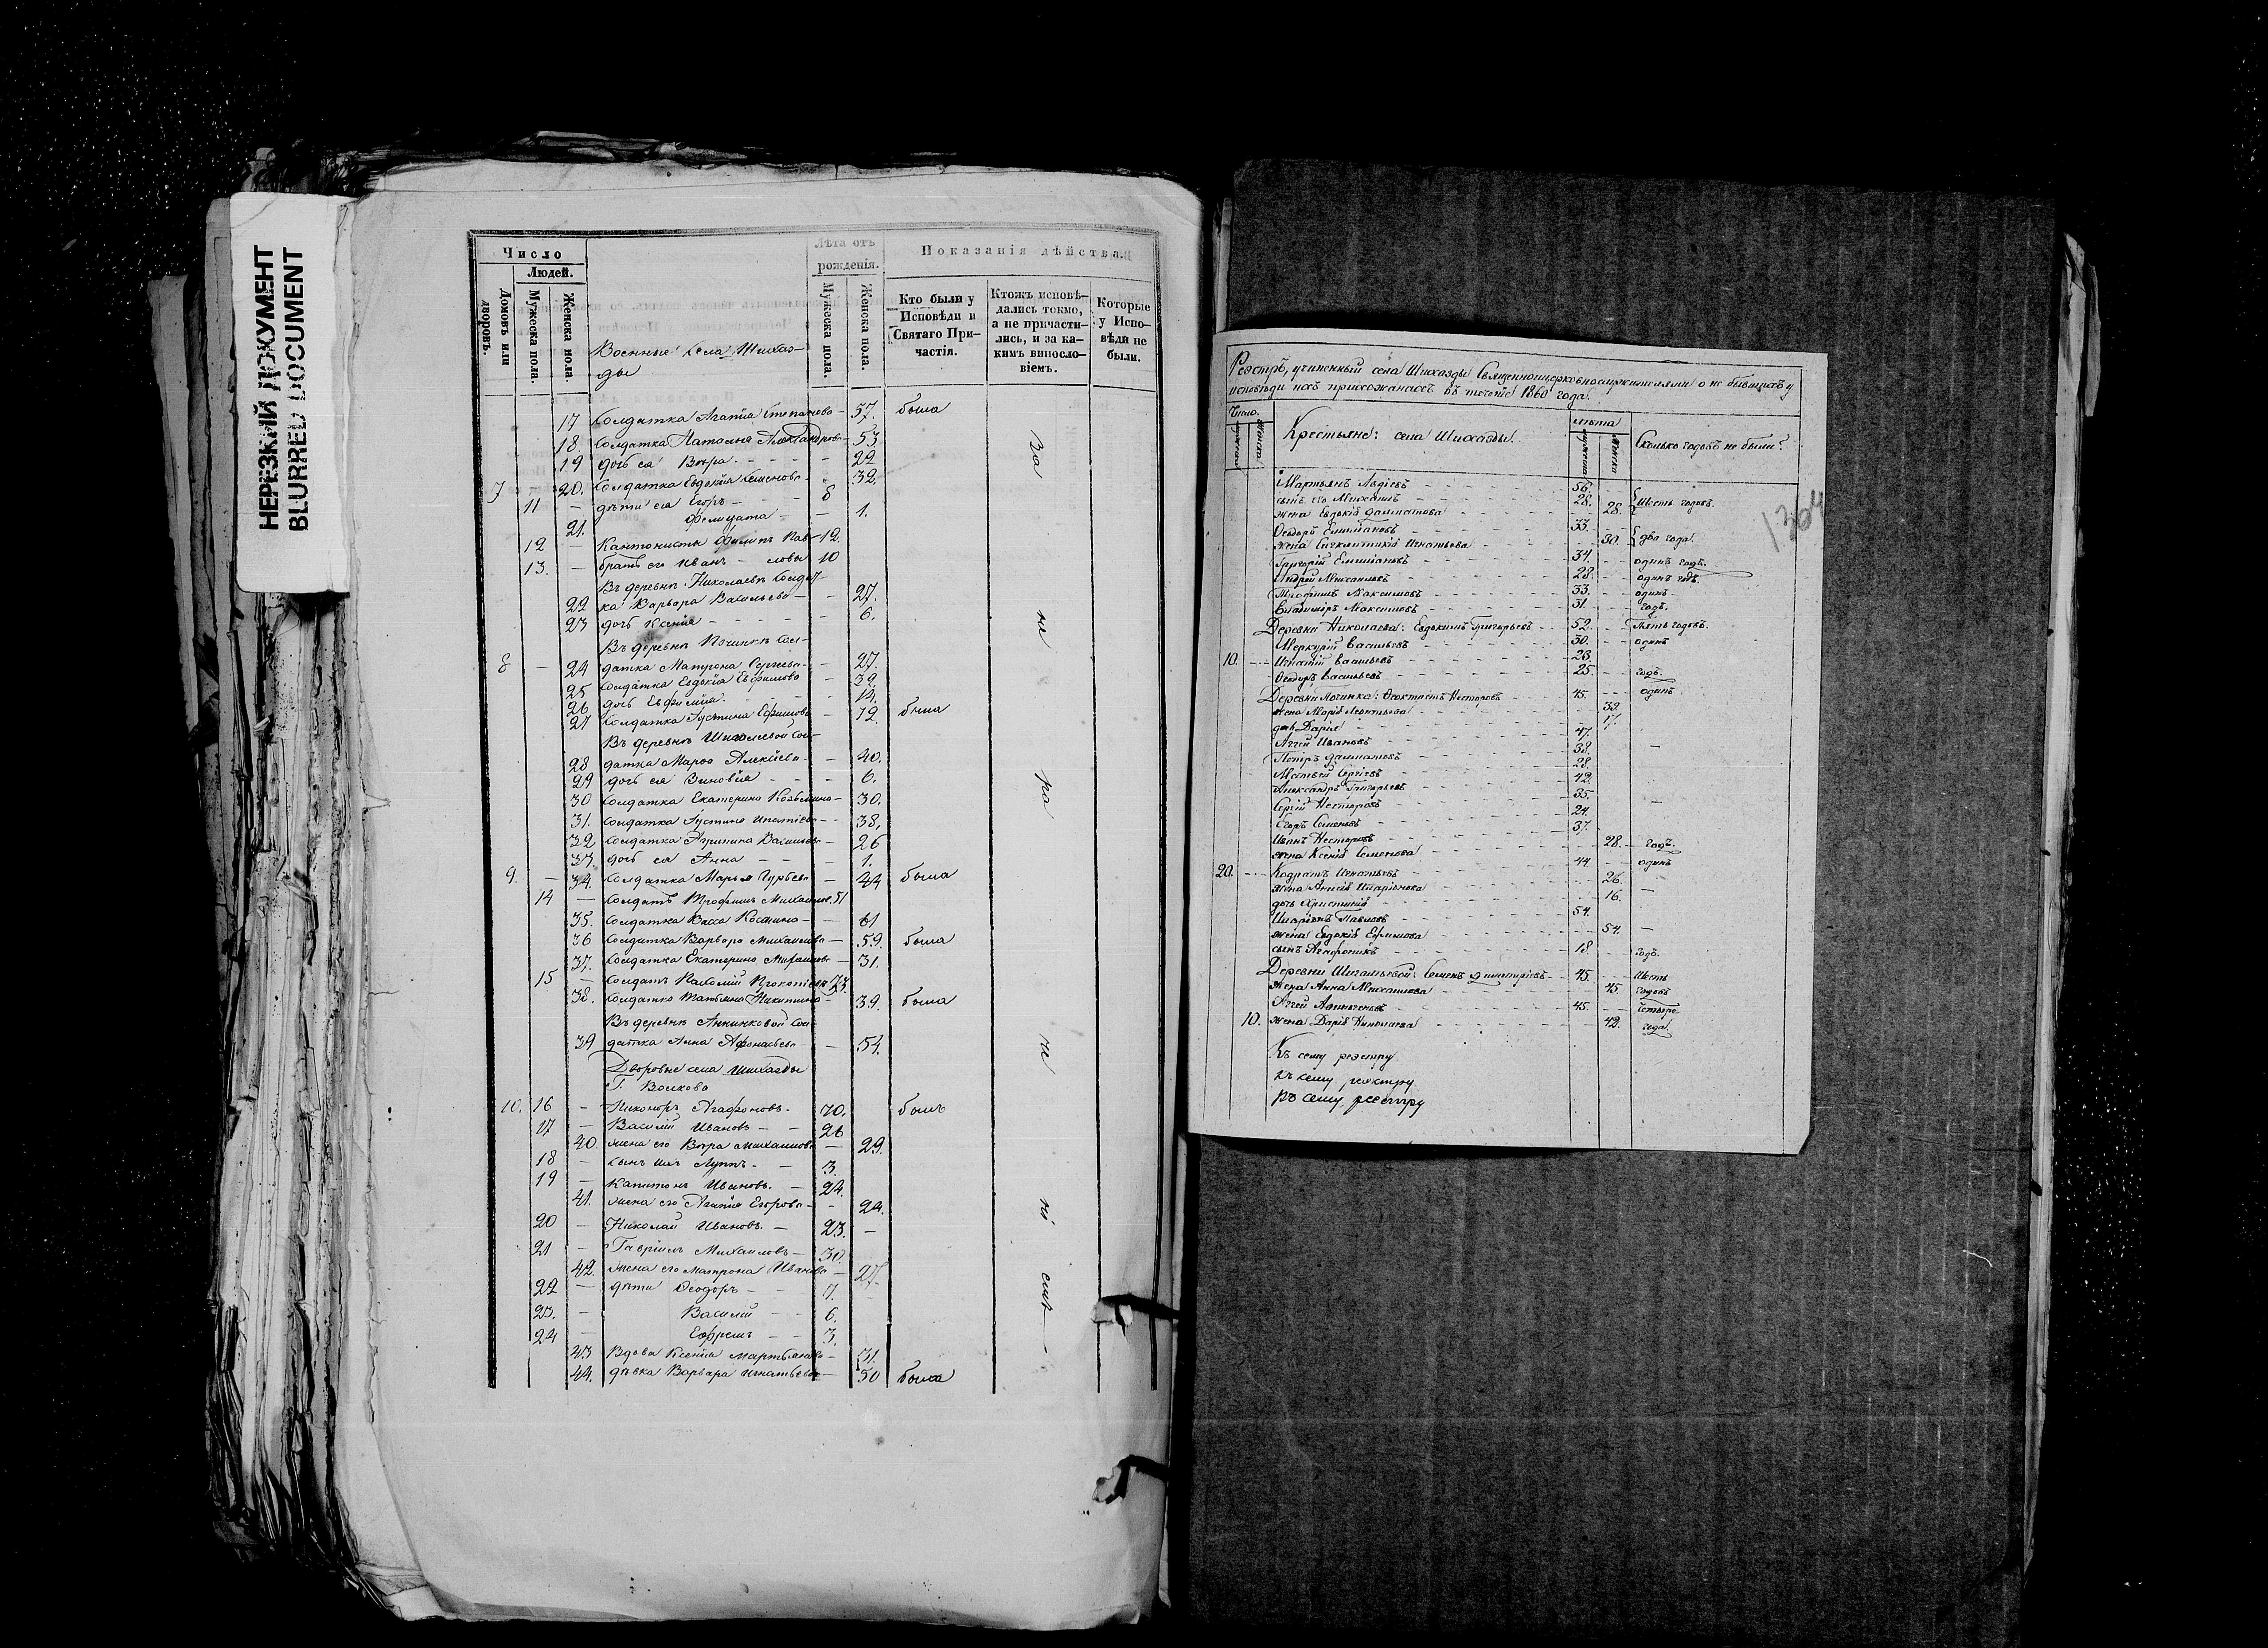 НЕРЕЗКИЙ ДОКУМЕНТ
BLURRED DOCUMENT
Число
Людей.
Домовъ или дворовъ.
Мужеска пола.
Женска пола.
Лѣта отъ рожденія.
Мужеска пола.
Женска пола.
Показанія дѣйства.
Кто были у Исповѣди и Святаго При-
частія.
Ктожъ исповѣ-
дались токмо,
а не причасти-
лись, и за ка-
кимъ винословіемъ.
Которые
у Испо-
вѣди не
были.
Военные села Шихаз-
ды
17 Солдатка Агапія Степанова - 57. была
18 Солдатка Наталья Александрова - 53
19 дочь ея Вѣра - 22
7 - 20. Солдатка Евдокія Семенова - 32.
11 - дѣти ея Егоръ - 8
21. Фелицата - 1.
12 - Кантонисты Филипъ Пав- 12.
13. - братъ его Иванъ - ловы 10
Въ деревнѣ Николаевѣ Солдат-
22 ка Варвара Васильева - 27.
23 дочь Ксенія - 6.
Въ деревнѣ Починкѣ Сол-
8 - 24 датка Матрона Сергѣева - 27.
25 Солдатка Евдокія Евфимова - 39.
26 дочь Евфимія - 14.
27 Солдатка Іустина Ефимова - 72. была
Въ деревнѣ Шигалевой Сол-
28 датка Марфа Алексіева - 40.
29 дочь ея Зиновія - 6.
30 Солдатка Екатерина Козьмина - 30.
31. Солдатка Іустина Ипатіева - 38.
32 Солдатка Агрипина Васильева - 26
33 дочь ея Анна - 1.
9. - 34. Солдатка Марья Гурьева - 44 была
14 - Солдатъ Трофимъ Михаиловъ. 51
35. Солдатка Васса Костина - 61
36 Солдатка Варвара Михаилова - 59. была
37. Солдатка Екатерина Михаилова - 31.
15 - Солдатъ Пахомій Прокопіевъ 73.
38. Солдатка Татьяна Никитина - 39. была
Въ деревнѣ Аникинковой Сол-
39 датка Анна Афонасьева - 54.
Дворовые села Шихазды
Г. Волкова
10. 16 - Никаноръ Агафоновъ - 70. былъ
17 - Василій Ивановъ - 26
40. жена его Вѣра Михаилова - 29.
18 - сынъ ихъ Луппъ - 3.
19 - Капитонъ Ивановъ. - 24.
41. жена его Агапія Егорова - 24.
20 - Николай Ивановъ. - 23. -
21 - Гавріилъ Михаиловъ - 30.
42. жена его Матрона Иванова - 27.
22 - дѣти Ѳеодоръ - 7.
23. - Василій - 6.
24 - Ефремъ - 3.
43 Вдова Ксенія Мартьянова - 31.
44. дѣвка Варвара Игнатьева - 50 была
Реэстръ, учиненный села Шихазды Священноцерковнослужителями о не бывшихъ у
исповѣди ихъ прихожанахъ въ теченіе 1860 года.
Число.
мужеска.
женска.
Крестьяне: села Шихазды.
лѣта
мужеска
женска
Сколько годовъ не были?
1364
Мартьянъ Авдіевъ 56.
сынъ его Михаилъ 28. Шесть годовъ.
жена Евдокія Далматова 28.
Ѳеодоръ Емиліановъ 33.
жена Синклитикія Игнатьева 30. два года.
Григорій Емиліановъ 34. одинъ годъ.
Андрей Михаиловъ 28. одинъ годъ.
Трофимъ Максимовъ 33. одинъ
Владиміръ Максимовъ 31. годъ.
Деревни Николаева: Евдокимъ Григорьевъ 52. Пять годовъ.
Меркурій Васильевъ 30. одинъ
10. Игнатій Васильевъ 23.
Ѳеодоръ Васильевъ 25. годъ.
Деревни Починка: Ѳеоктистъ Несторовъ 45. одинъ
жена Марія Леонтьева 33.
дочь Дарія 17.
Аггей Ивановъ 47.
Петръ Далматовъ 38.
Матвей Сергіевъ 28.
Александръ Григорьевъ 42.
Сергій Несторовъ 35.
Егоръ Семеновъ 24.
Иванъ Несторовъ 37.
жена Ксенія Семенова 28. годъ.
20. Кодратъ Игнатьевъ 44. одинъ
жена Анисія Иларіонова 26.
дочь Христинія 16.
Иларіонъ Павловъ 54.
жена Евдокія Ефимова 54.
сынъ Агафоникъ 18. годъ.
Деревни Шигалевой: Семенъ Димитріевъ 45. Шесть
жена Анна Михаилова 45. годовъ
Аггей Афиногеновъ 45. Четыре
10. жена Дарія Николаева 42. года.
Къ сему реэстру
Къ сему реэстру
Къ сему реестру